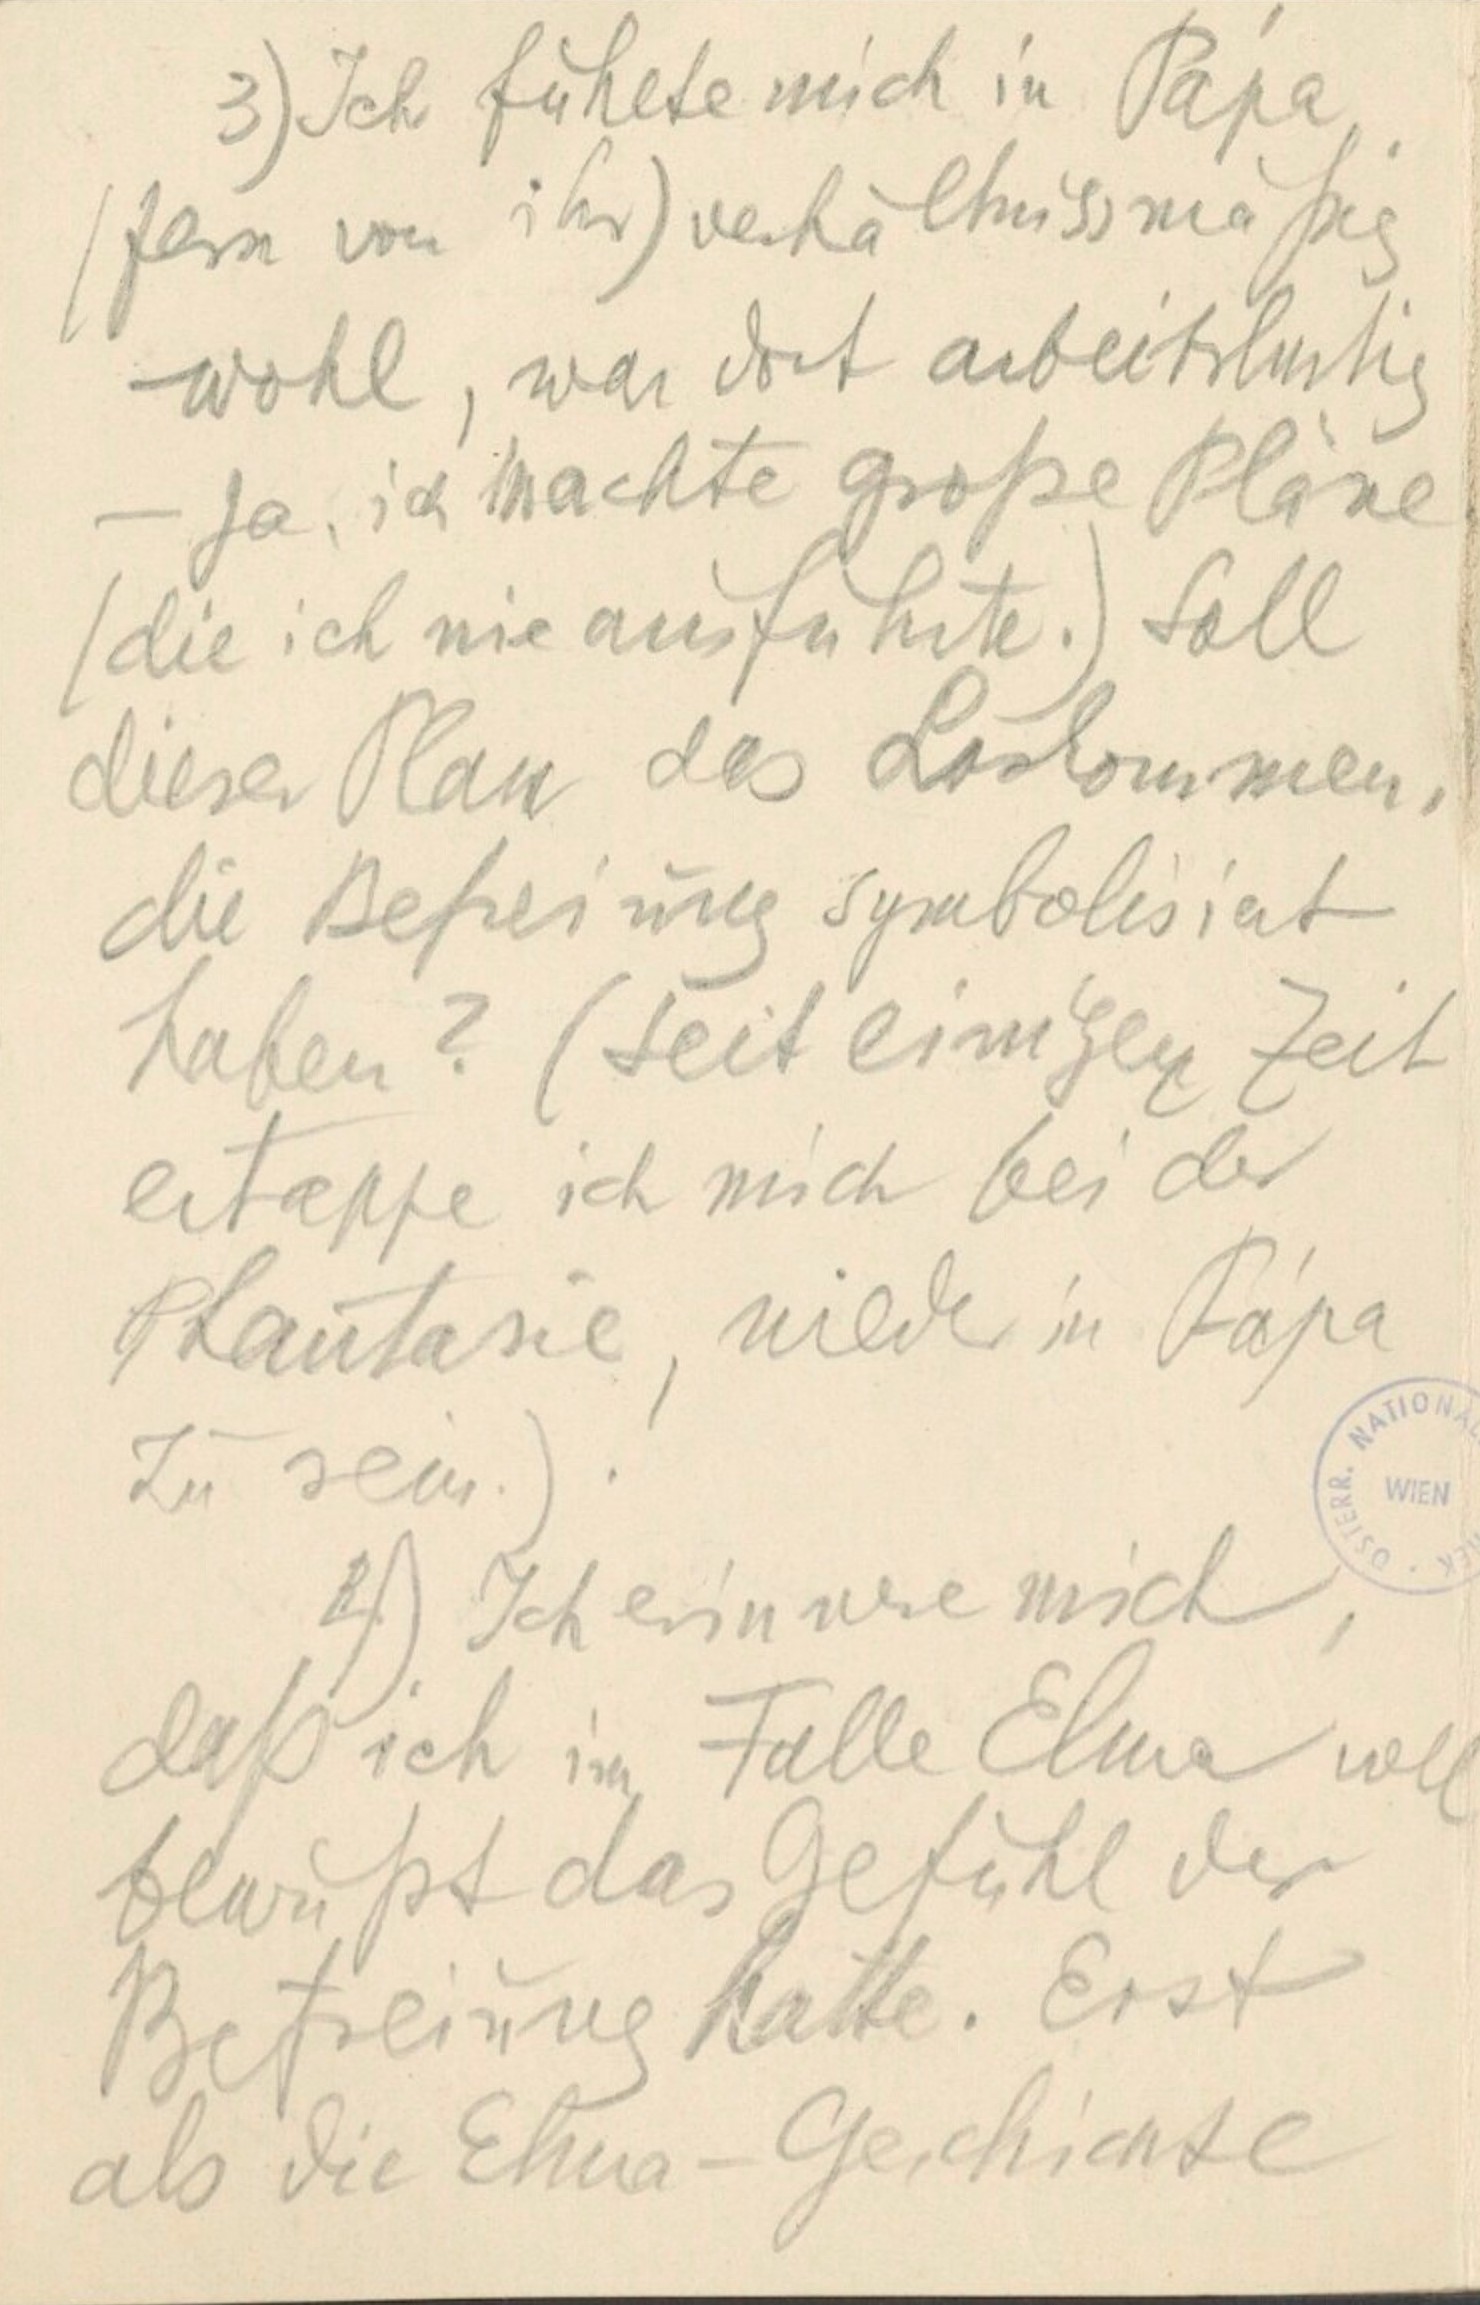 3) Ich fühlte mich in Pápa
(fern von ihr) verhältnissmäßig
wohl, war dort arbeitslustig
– ja, ich machte große Pläne
(die ich nie ausführte.) Soll
dieser Plan das Loskommen,
die Befreiung symbolisirt
haben? (Seit einigen Zeit
ertappe ich mich bei der
Phantasie, wieder in Pápa
zu sein.).
ÖSTERR. NATIONAL
WIEN
4) Ich erinnere mich,
daß ich im Falle Elma voll
bewußt das Gefühl der
Befreiung hatte. Erst
als die Elma–Geschichte